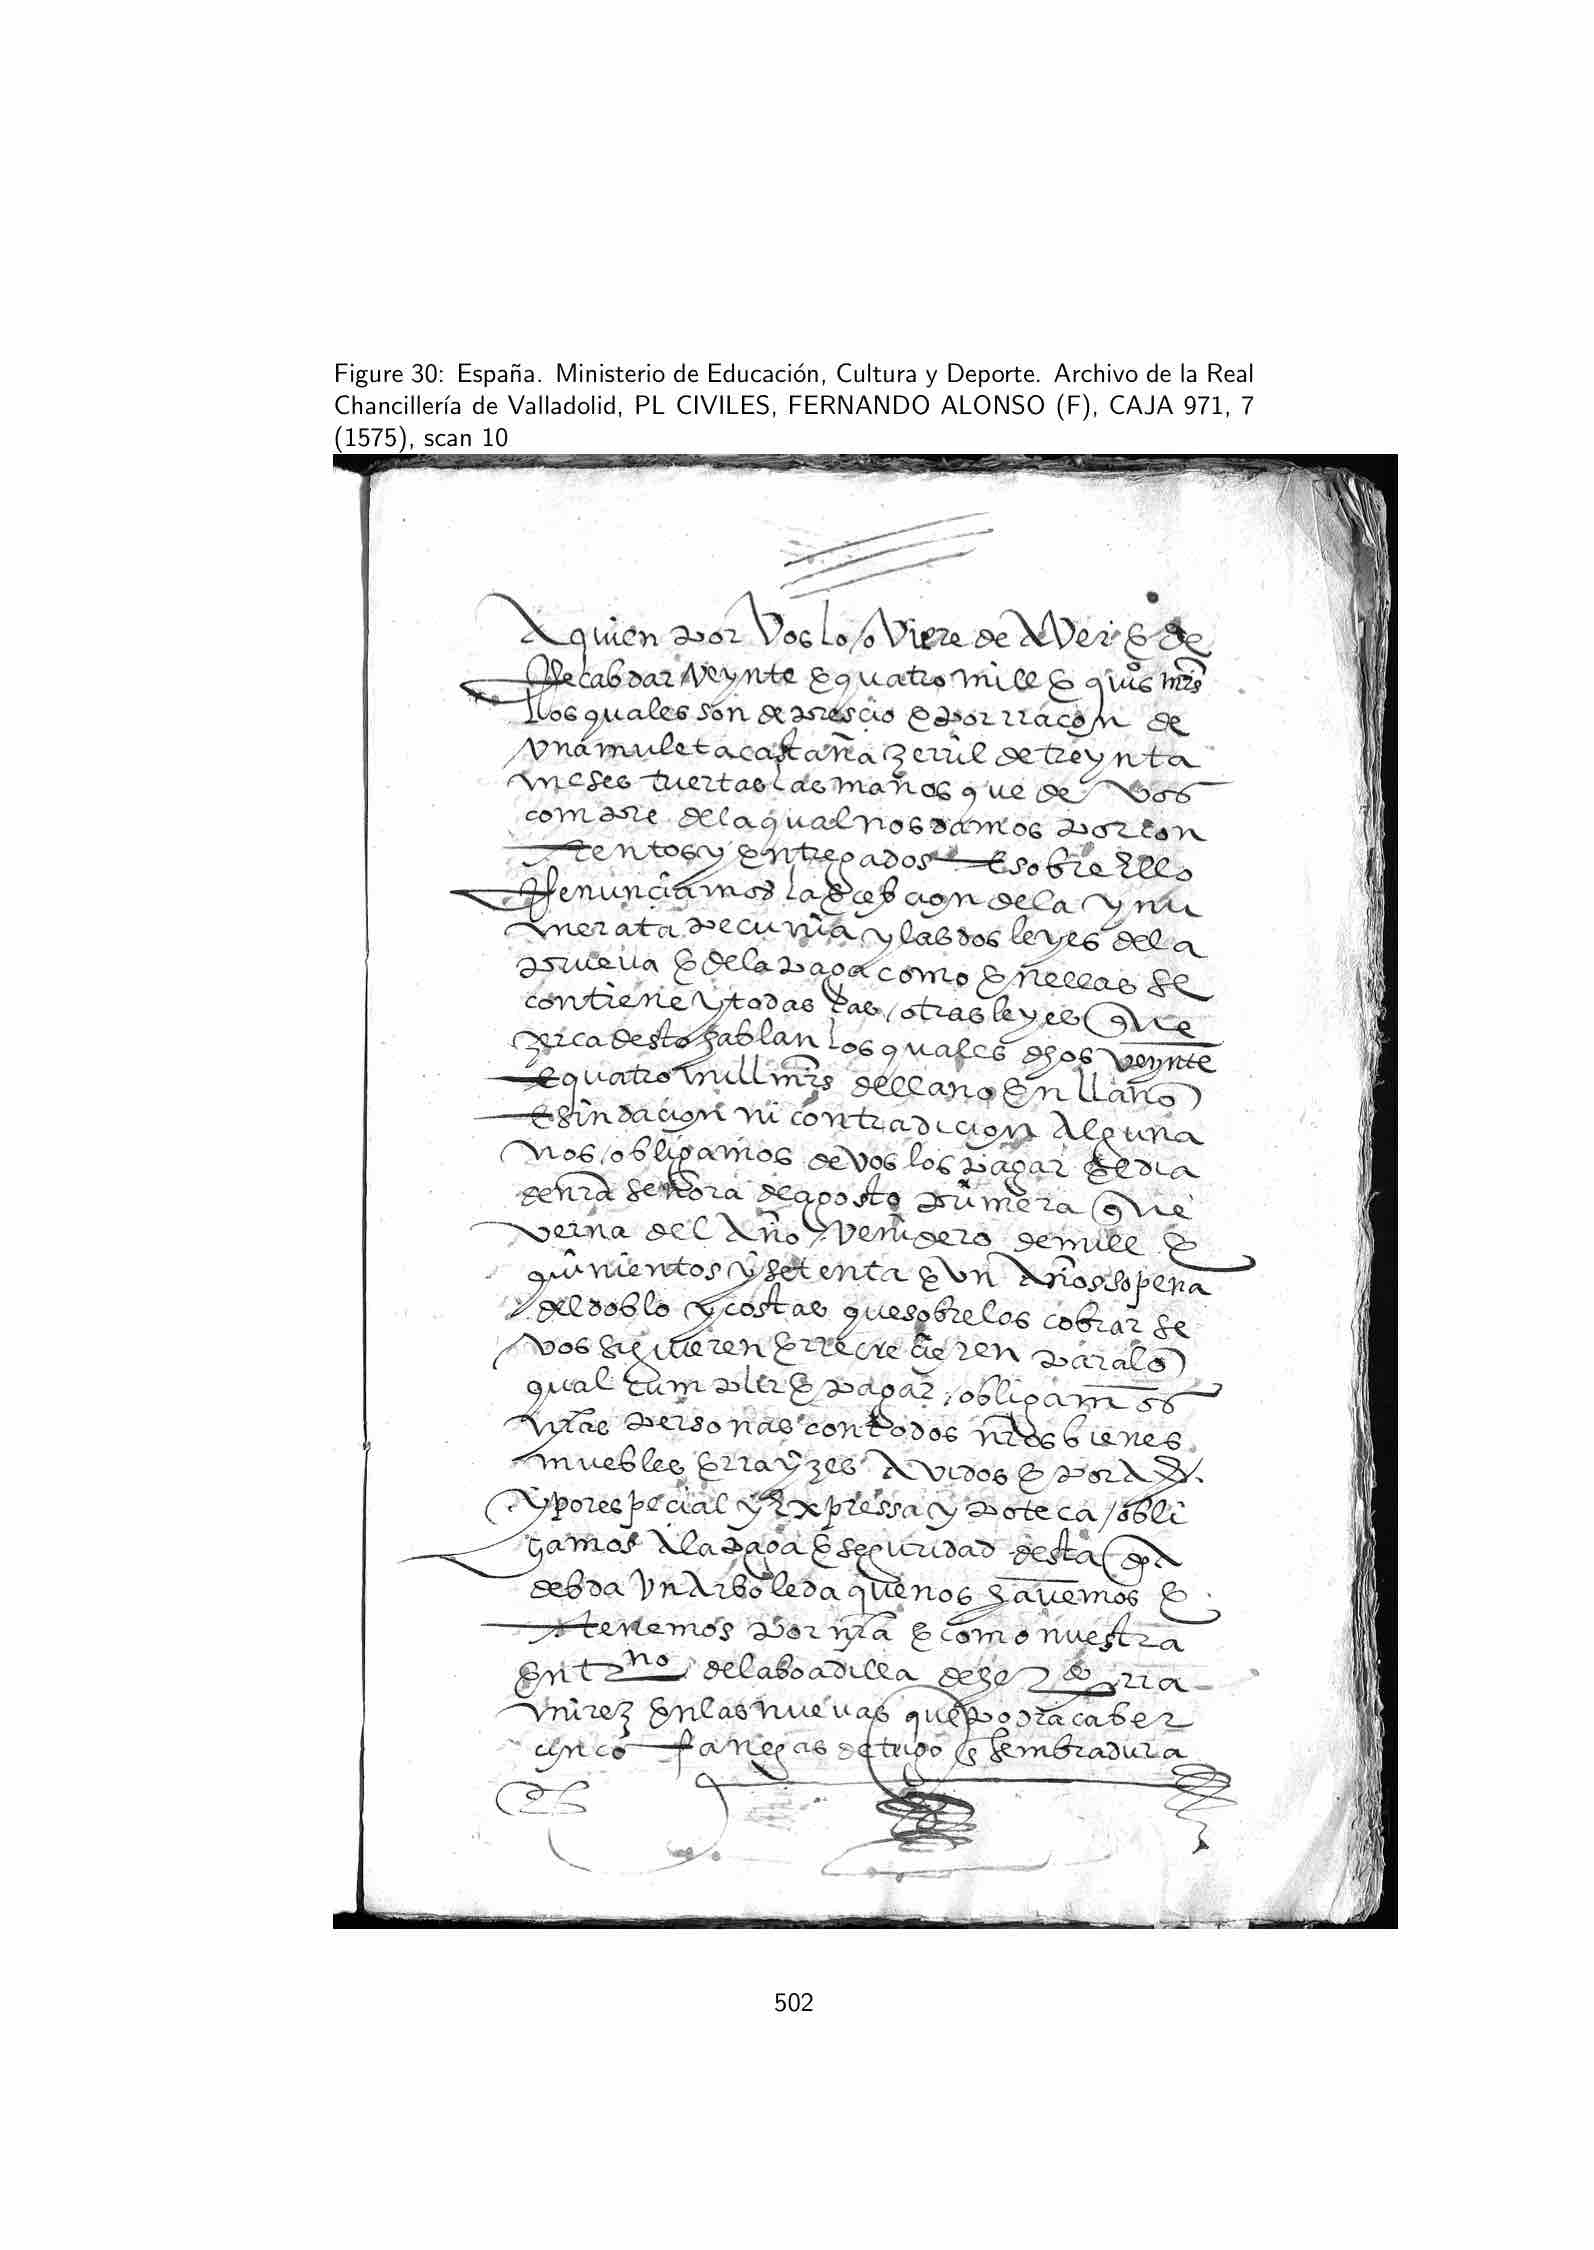 Figure 30: España. Ministerio de Educación, Cultura y Deporte. Archivo de la Real
Chancillería de Valladolid, PL CIVILES, FERNANDO ALONSO (F), CAJA 971, 7
(1575), scan 10
A quien por vos lo oviere de aver e de
Recabdar veynte e quatro mill e quis mrs
los quales son de prescio e por rraçon de
una muleta castaña zerril de treynta
meses tuertas las manos que de vos
compre de la qual nos damos por con
tentos y entregados e sobre ello
Renunciamos la ecebcion de la ynu
merata pecunia y las dos leyes de la
prueva e de la paga como en ellas se
contiene y todas las otras leyes que
zerca desto hablan los quales dhos veynte
e quatro mill mrs de llano en llano
e sin dacion ni contradicion alguna
nos obligamos de vos los pagar el dia
de nra señora de agosto primera que
verna del año venidero de mill e
quinientos y setenta e un años so pena
del doblo y costas que sobre los cobrar se
vos siguieren e rrecrecieren para lo
qual cumplir e pagar obligamos
nras personas con todos nros bienes
muebles e rrayzes avidos e por aver
y por especial y expressa ypoteca obli
gamos a la paga e seguridad desta dha
debda un arboleda que nos havemos e
tenemos por nra e como nuestra
en tno de la boadilla de rra
mirez en las nuevas que podra caber
cinco fanegas de trigo sembradura
502